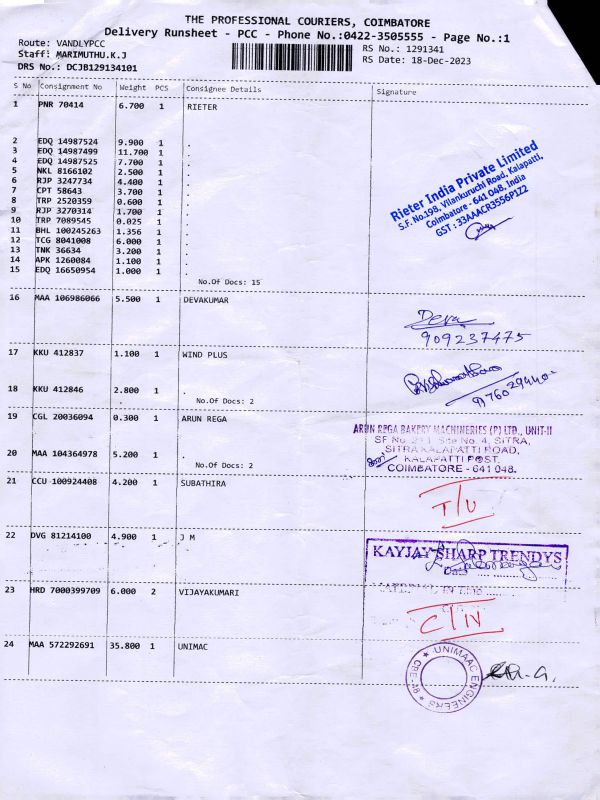 THE PROFESSIONAL COURIERS, COIMBATORE
Delivery Runsheet - PCC - Phone No.:0422-3505555 - Page No.:1
Route: VANDLYPCC
RS No.: 1291341
Staff: MARIMUTHU.K.J
RS Date: 18-Dec-2023
DRS No.: DCJB129134101
S No Consignment No Weight PCS Consignee Details Signature
1 PNR 70414 6.700 1 RIETER
2 EDQ 14987524 9.900 1 .
3 EDQ 14987499 11.700 1 .
4 EDQ 14987525 7.700 1 .
5 NKL 8166102 2.500 1 .
6 RJP 3247734 4.400 1 .
7 CPT 58643 3.700 1 .
8 TRP 2520359 0.600 1 .
9 RJP 3270314 1.700 1 .
10 TRP 7089545 0.025 1 .
11 BHL 100245263 1.356 1 .
12 TCG 8041008 6.000 1 .
13 TNK 36634 3.200 1 .
14 APK 1260084 1.100 1 .
15 EDQ 16650954 1.000 1 .
No.Of Docs: 15
Rieter India Private Limited
S.F. No.198, Vilankuruchi Road, Kalapatti,
Coimbatore - 641 048, India
GST : 33AAACR3556P1Z2
16 MAA 106986066 5.500 1 DEVAKUMAR
Deva
909237475
17 KKU 412837 1.100 1 WIND PLUS
18 KKU 412846 2.800 1 .
No.Of Docs: 2
19 CGL 20036094 0.300 1 ARUN REGA
20 MAA 104364978 5.200 1 .
No.Of Docs: 2
ARUN REGA BAKERY MACHINERIES (P) LTD., UNIT-II
SF No. Site No. 4, SITRA,
SITRA KALAPATTI ROAD,
KALAPATTI POST.
COIMBATORE - 641 048.
21 CCU 100924408 4.200 1 SUBATHIRA
T/U
22 DVG 81214100 4.900 1 J M
KAYJAY SHARP TRENDYS
Date
23 HRD 7000399709 6.000 2 VIJAYAKUMARI
C/N
24 MAA 572292691 35.800 1 UNIMAC
UNIMAAC ENGINEERS